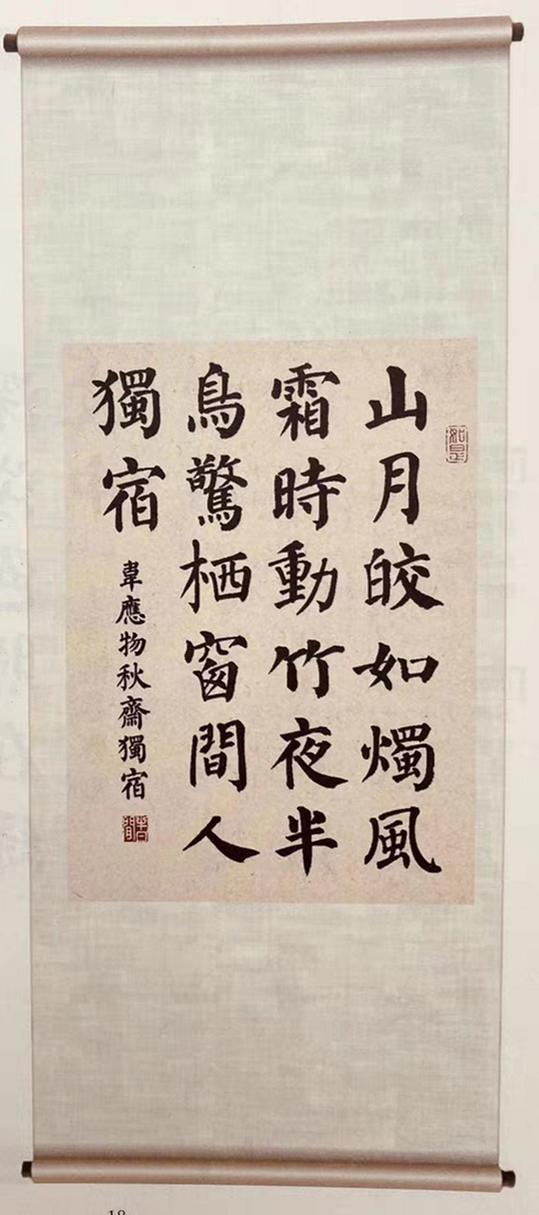 山月皎如燭風
霜時動竹夜半
鳥驚栖窗間人
獨宿
韋應物秋齋獨宿
如是
18